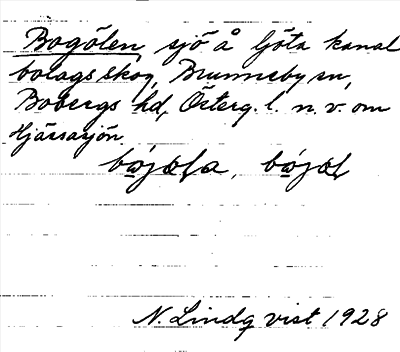 Bogölen, sjö å Göta kanal
bolags skog, Brunneby sn,
Bobergs hd, Österg. l. n. v. om
Hjässasjön.
N. Lindqvist 1928